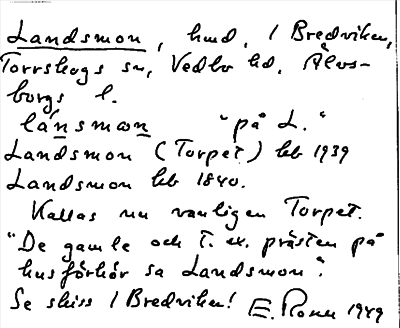 Landsmon, hmd, / Bredviken,
Torrskogs sn, Vedbo hd, Älvs-
borgs l.
lánsmɑn "på L."
Landsmon (Torpet) kb 1939
Landsmon kb 1840.
Kallas nu vanligen Torpet.
"De gamle och t. ex. prästen på
husförhör sa Landsmon".
Se skiss / Bredviken! E. Ronn 1949